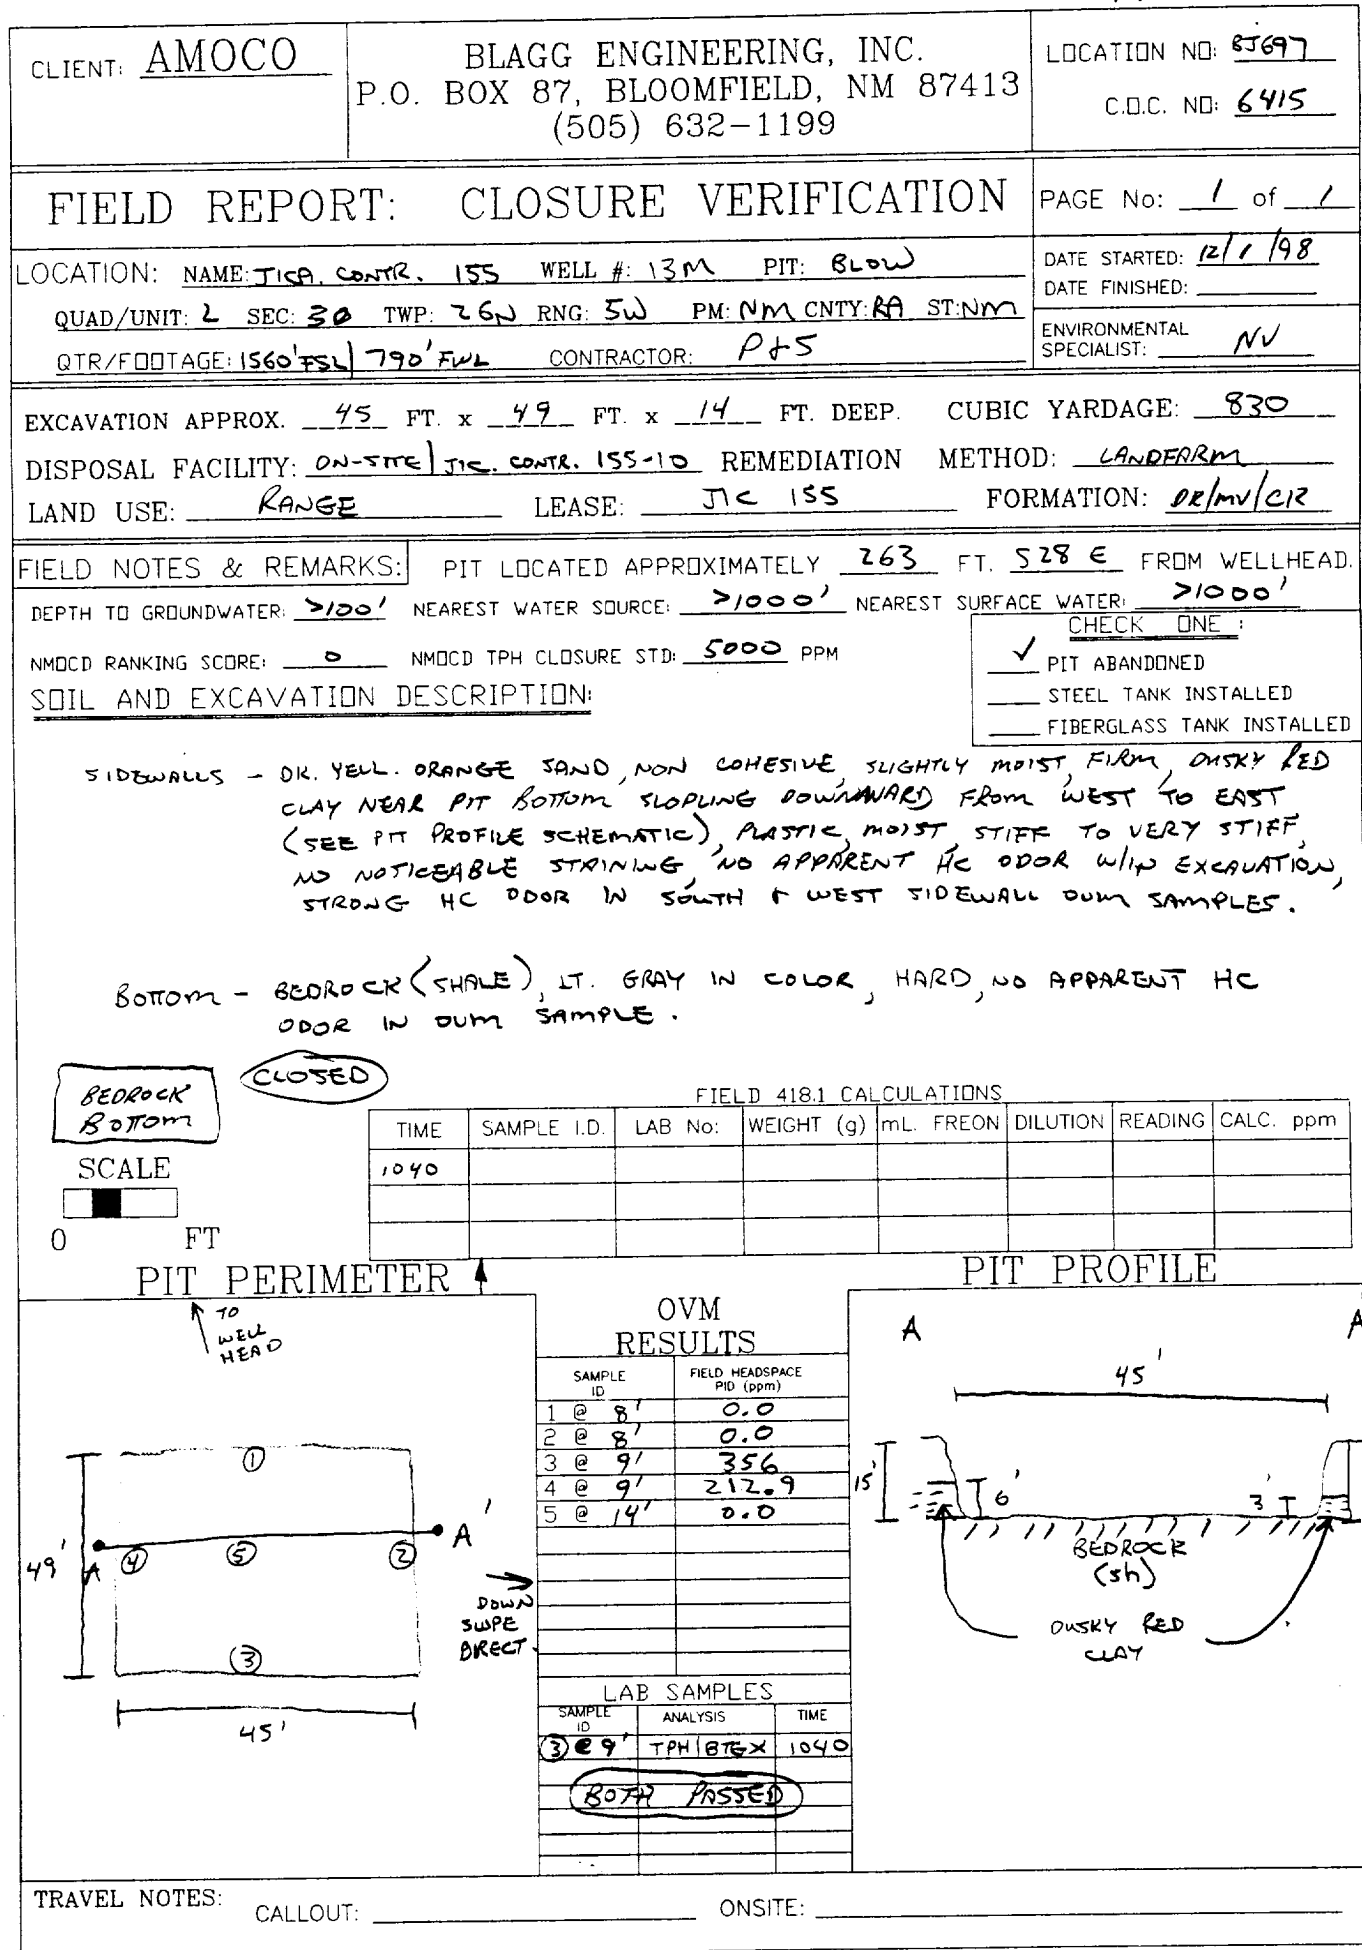 CLIENT: AMOCO
BLAGG ENGINEERING, INC.
P.O. BOX 87, BLOOMFIELD, NM 87413
(505) 632-1199
LOCATION NO: BJ697
C.O.C. NO: 6415
FIELD REPORT: CLOSURE VERIFICATION
PAGE No: 1 of 1
LOCATION: NAME: JICA. CONTR. 155 WELL #: 13M PIT: BLOW
QUAD/UNIT: L SEC: 30 TWP: 26N RNG: 5W PM: NM CNTY: RA ST: NM
QTR/FOOTAGE: 1560'FSL/790'FWL CONTRACTOR: P&S
DATE STARTED: 12/1/98
DATE FINISHED:
ENVIRONMENTAL
SPECIALIST: NV
EXCAVATION APPROX. 45 FT. x 49 FT. x 14 FT. DEEP. CUBIC YARDAGE: 830
DISPOSAL FACILITY: ON-SITE/JIC. CONTR. 155-10 REMEDIATION METHOD: LANDFARM
LAND USE: RANGE LEASE: JIC 155 FORMATION: DK/MV/CK
FIELD NOTES & REMARKS: PIT LOCATED APPROXIMATELY 263 FT. S28E FROM WELLHEAD.
DEPTH TO GROUNDWATER: >100' NEAREST WATER SOURCE: >1000' NEAREST SURFACE WATER: >1000'
NMOCD RANKING SCORE: 0 NMOCD TPH CLOSURE STD: 5000 PPM
CHECK ONE :
✓ PIT ABANDONED
STEEL TANK INSTALLED
FIBERGLASS TANK INSTALLED
SOIL AND EXCAVATION DESCRIPTION:
SIDEWALLS - DK. YELL. ORANGE SAND, NON COHESIVE, SLIGHTLY MOIST, FIRM, DUSKY RED
CLAY NEAR PIT BOTTOM SLOPLING DOWNWARD FROM WEST TO EAST
(SEE PIT PROFILE SCHEMATIC), PLASTIC, MOIST, STIFF TO VERY STIFF,
NO NOTICEABLE STAINING, NO APPARENT HC ODOR W/IN EXCAVATION,
STRONG HC ODOR IN SOUTH & WEST SIDEWALL OVM SAMPLES.
BOTTOM - BEDROCK (SHALE), LT. GRAY IN COLOR, HARD, NO APPARENT HC
ODOR IN OVM SAMPLE.
BEDROCK
BOTTOM
CLOSED
SCALE
0 FT
FIELD 418.1 CALCULATIONS
TIME SAMPLE I.D. LAB No: WEIGHT (g) mL. FREON DILUTION READING CALC. ppm
1040
PIT PERIMETER
TO
WELL
HEAD
①
A ④ ⑤ ② A'
③
49'
45'
DOWN
SLOPE
DIRECT.
OVM
RESULTS
SAMPLE ID FIELD HEADSPACE PID (ppm)
1 @ 8' 0.0
2 @ 8' 0.0
3 @ 9' 356
4 @ 9' 212.9
5 @ 14' 0.0
LAB SAMPLES
SAMPLE ID ANALYSIS TIME
③@9' TPH/BTEX 1040
BOTH PASSED
PIT PROFILE
A A
45'
15' 6' 3'
BEDROCK
(sh)
DUSKY RED
CLAY
TRAVEL NOTES: CALLOUT: ONSITE: